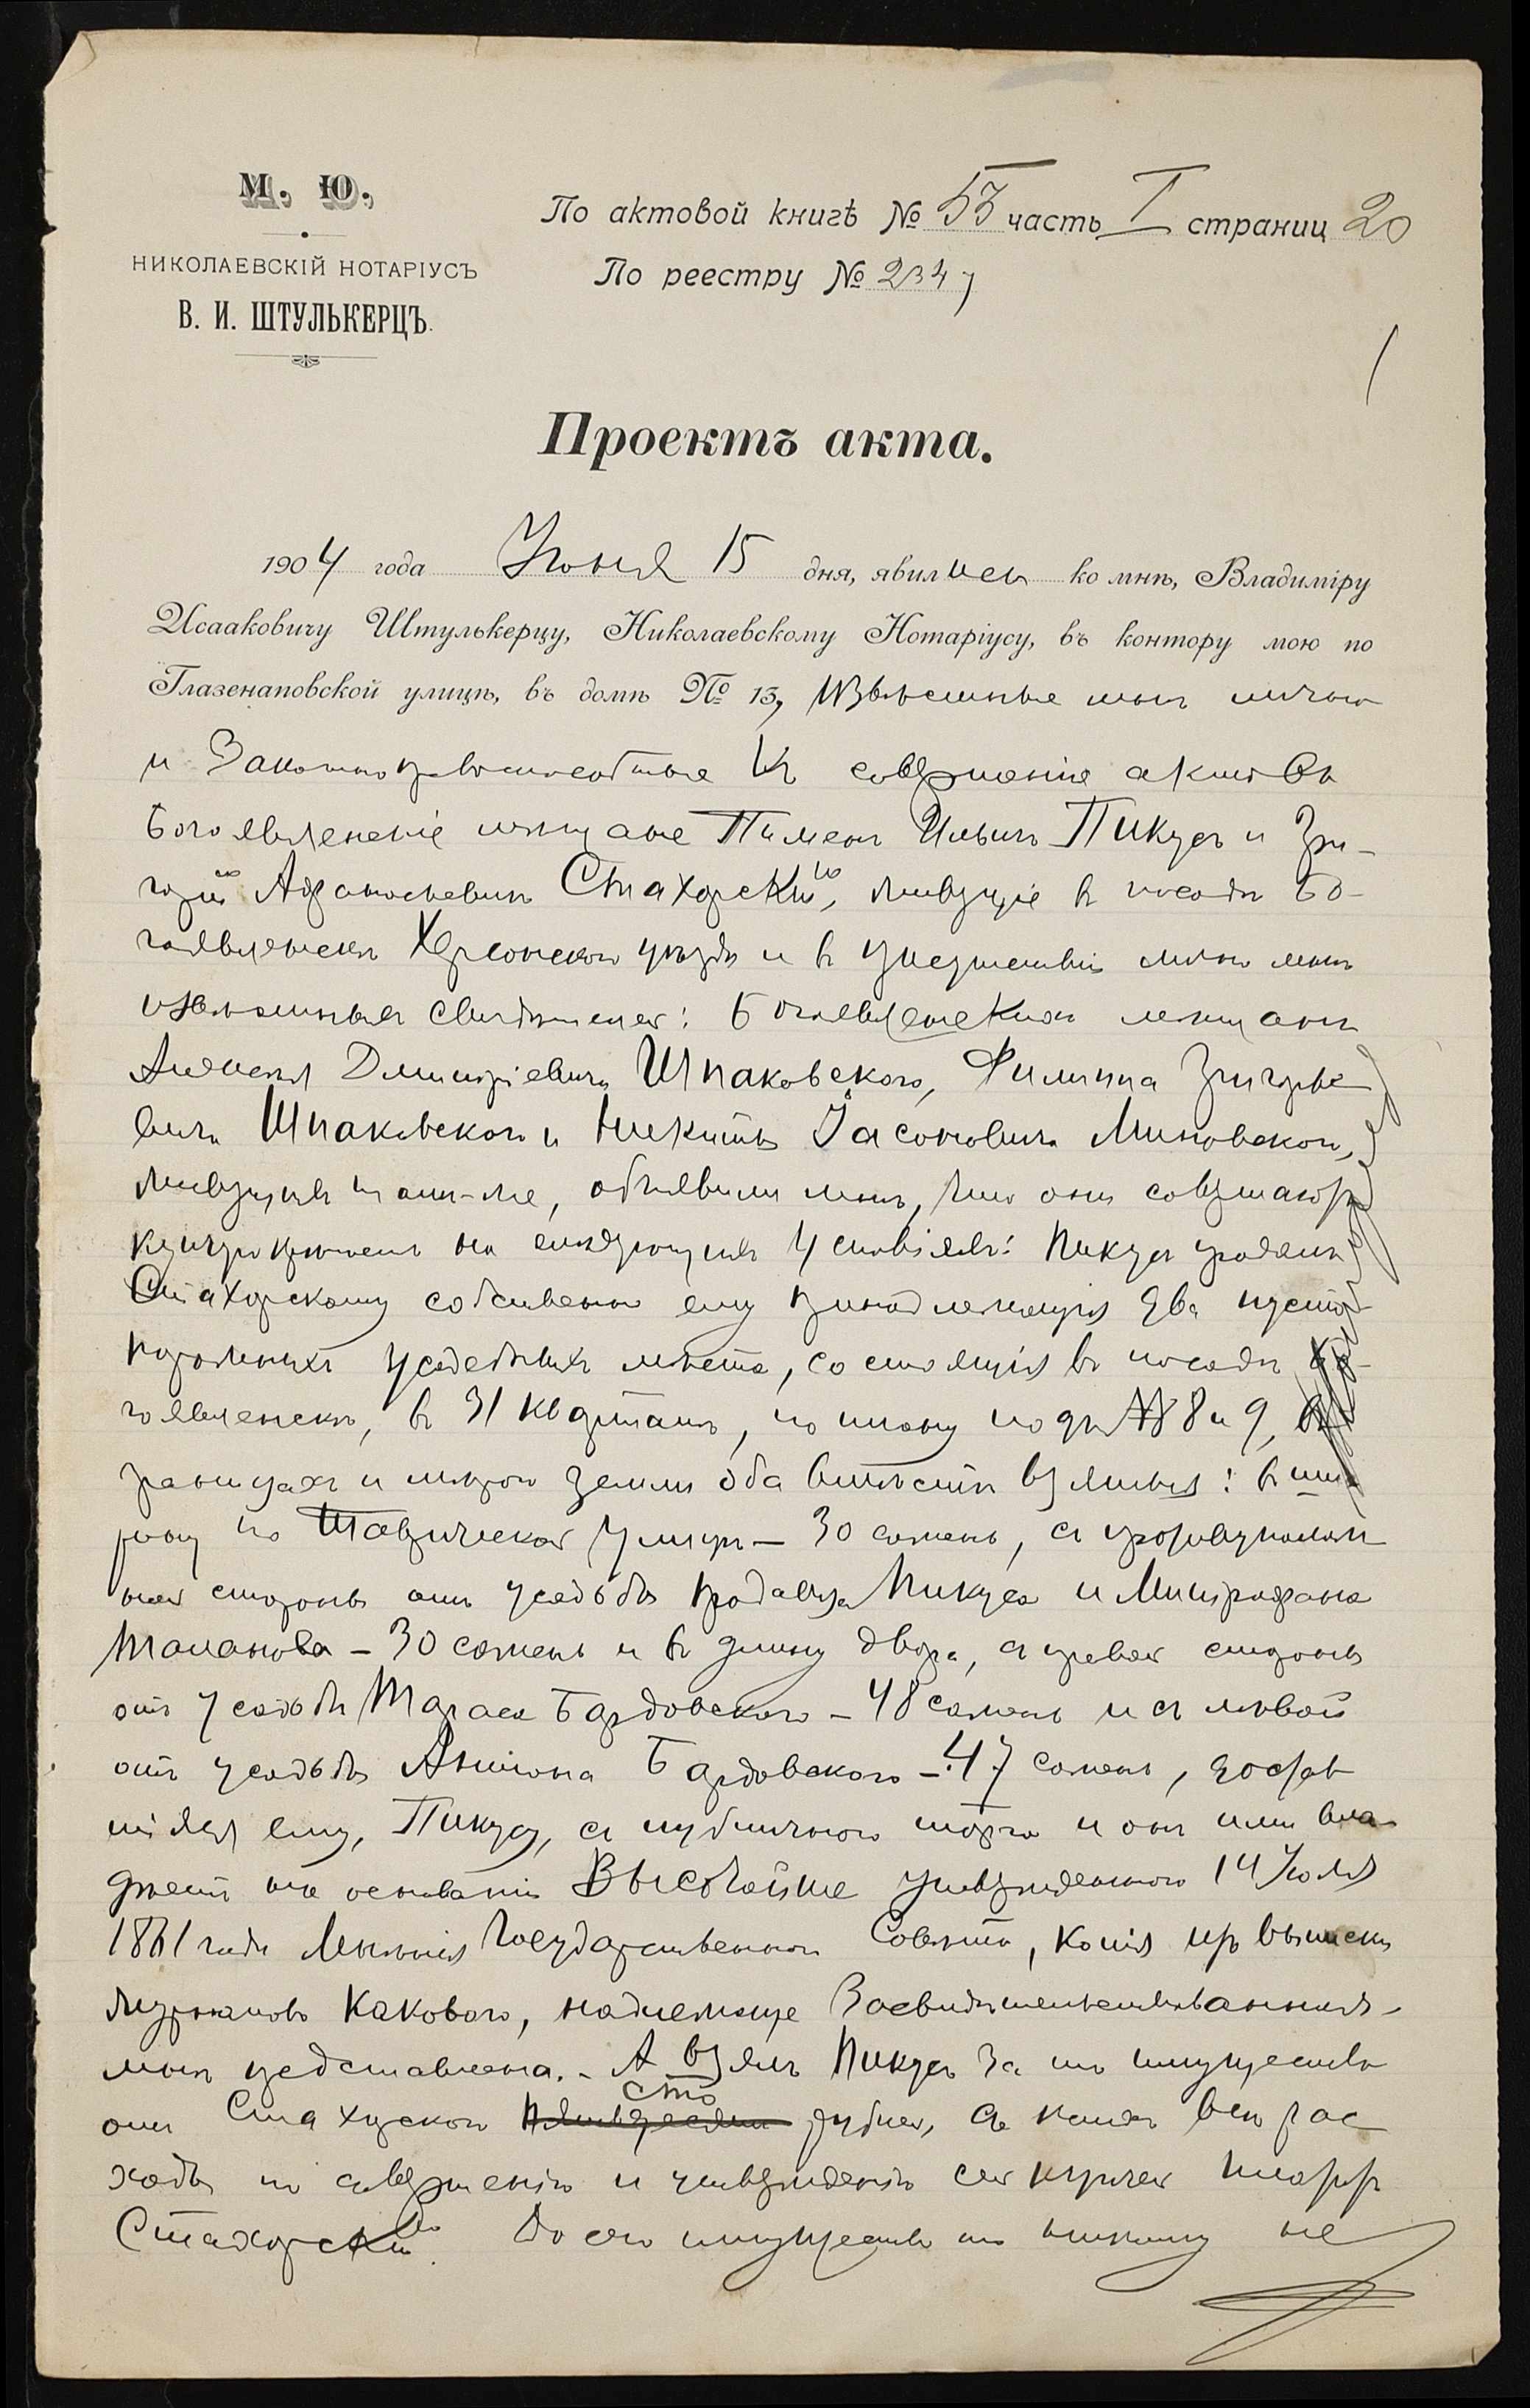 М. Ю.
НИКОЛАЕВСКІЙ НОТАРІУСЪ
В. И. ШТУЛЬКЕРЦЪ.
По актовой книгѣ № 53 часть I страниц 20
По реестру № 2347
1
Проектъ акта.
1904 года Іюня 15 дня, явились ко мнѣ, Владиміру
Исааковичу Штулькерцу, Николаевскому Нотаріусу, въ контору мою по
Глазенаповской улицѣ, въ домѣ № 13, извѣстные мнѣ лично
и законно правоспособные къ совершенію актовъ
Богоявленскіе мѣщане Пименъ Ильичъ Пикусъ и Гри-
горій Афанасьевичъ Стахорскій, живущіе въ посадѣ Бо-
гоявленскѣ Херсонскаго уѣзда и въ присутствіи лично мнѣ
извѣстныхъ свидѣтелей: Богоявленскихъ мѣщанъ
Алексѣя Дмитріевича Шпаковскаго, Филиппа Григорье
вича Шпаковскаго и Никиты Іасоновича Миновскаго,
живущихъ тамъ-же, объявили мнѣ, что они совершаютъ
купчую крѣпость на слѣдующихъ условіяхъ: Пикусъ продалъ
Стахорскому собственно ему принадлежащія два пусто-
порожнихъ усадебныхъ мѣста, состоящія въ посадѣ Бо-
гоявленскѣ, въ 31 кварталѣ, по плану подъ №№ 8 и 9, въ
границахъ и мѣрою земли оба вмѣстѣ взятыя: въ ши
рину по Таврической улицѣ — 30 сажень, съ противуполож
ной стороны отъ усадьбы продавца Пикуса и Митрофана
— 30 сажень и въ длину двора, съ правой стороны
отъ усадьбы Тараса Бардовскаго — 48 сажень и съ лѣвой
отъ усадьбы Антона Бардовскаго — 47 сажень, достав
шіяся ему, Пикусу, съ публичнаго торга и онъ ими вла
дѣетъ на основаніи Высочайше утвержденнаго 14 Іюля
года Мнѣнія Государственнаго Совѣта, копія изъ выписки
журналовъ каковаго, надлежаще засвидѣтельствованная
мнѣ представлена. - А взялъ Пикусъ за то имущество
отъ Стахорскаго сто рублей, съ коихъ всѣ рас
ходы по совершенію и утвержденію сей купчей
Стахорскій. До сего имущество то никому не